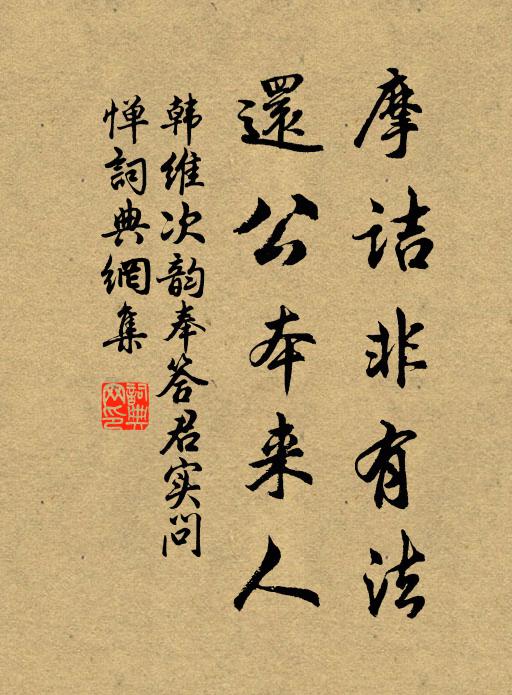 摩诘非有法
還公本来人
韩维次韵奉答君实问
惮詞典網集
詞典网印